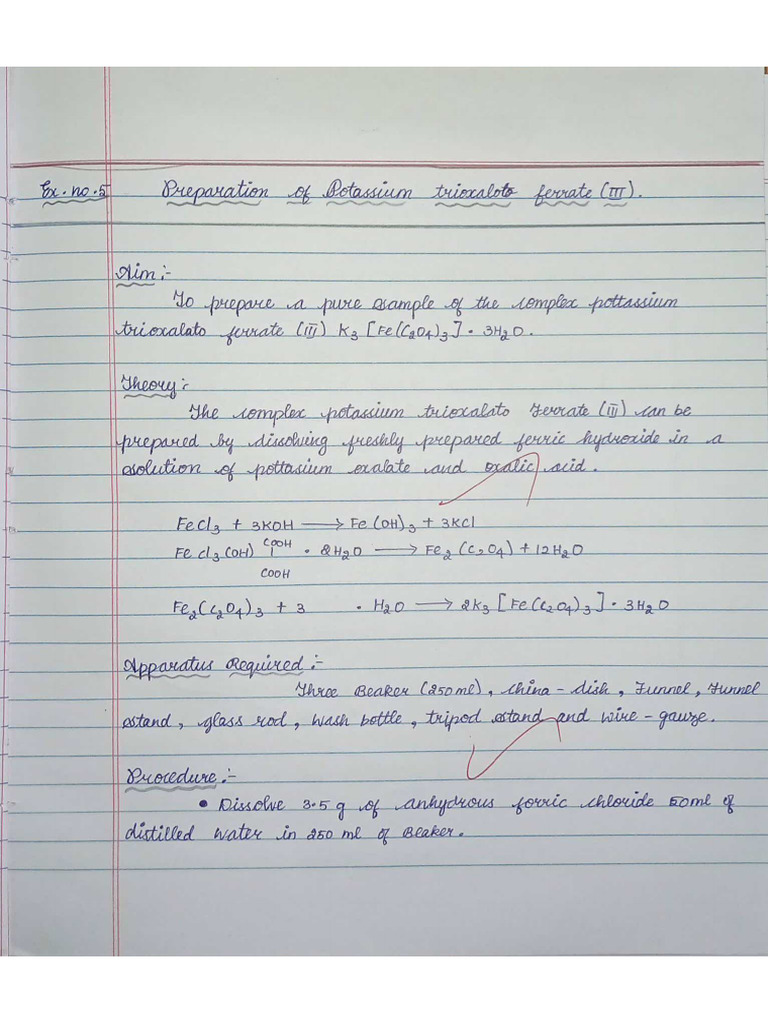 Ex. no. 5 Preparation of Potassium trioxalato ferrate (III).
Aim :-
To prepare a pure sample of the complex pottassium
trioxalato ferrate (III) K3 [Fe(C2O4)3] . 3H2O.
Theory :-
The complex potassium trioxalato ferrate (III) can be
prepared by dissolving freshly prepared ferric hydroxide in a
solution of pottasium oxalate and oxalic acid.
FeCl3 + 3KOH ⟶ Fe(OH)3 + 3KCl
COOH
Fe Cl3(OH) | . 2H2O ⟶ Fe2 (C2O4) + 12H2O
COOH
Fe2(C2O4)3 + 3 . H2O ⟶ 2K3 [Fe(C2O4)3] . 3H2O
Apparatus Required :-
Three Beaker (250ml), china-dish, Funnel, Funnel
stand, glass rod, wash bottle, tripod stand and wire-gauze.
Procedure :-
• Dissolve 3.5 g of anhydrous forric chloride 50ml of
distilled water in 250 ml of Beaker.